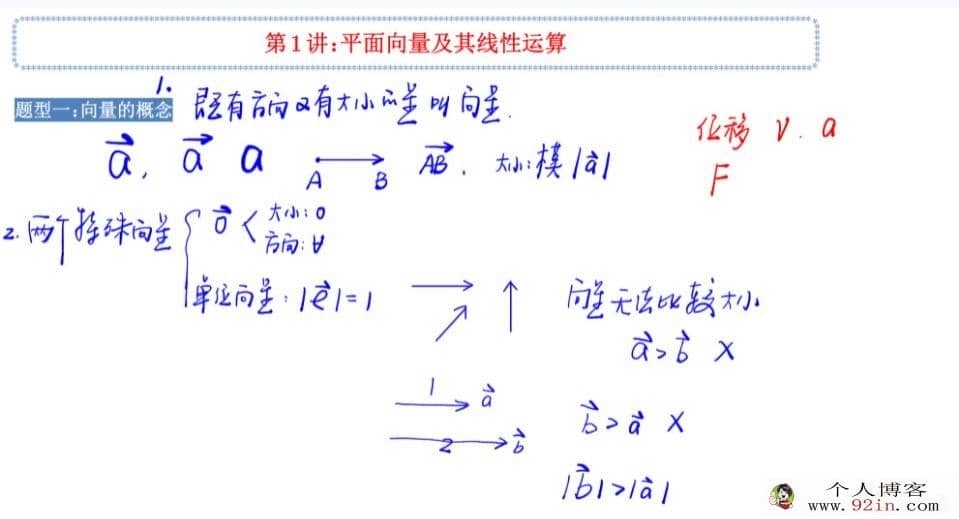 第1讲:平面向量及其线性运算
题型一:向量的概念
1. 既有方向又有大小的量叫向量.
a⃗, a⃗ a
A B AB⃗. 大小:模|a⃗|
位移 v. a
F
2. 两个特殊向量
0⃗
大小:0
方向:∀
单位向量:|e⃗|=1
向量无法比较大小
a⃗>b⃗ ×
1 a⃗
2 b⃗
b⃗>a⃗ ×
|b⃗|>|a⃗|
个人博客
www.92in.com